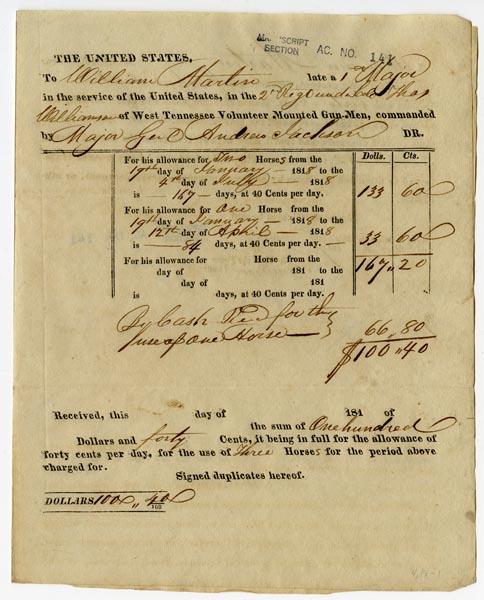 MANUSCRIPT
SECTION AC. NO. 141
THE UNITED STATES,
To William Martin late a 1st Major
in the service of the United States, in the 2d Regt under Col. Thos
Williamson of West Tennessee Volunteer Mounted Gun-Men, commanded
by Major Genl Andrew Jackson DR.
Dolls. Cts.
For his allowance for Two Horses from the
19th day of January 1818 to the
4th day of July 1818
is 167 days, at 40 Cents per day. 133 60
For his allowance for One Horse from the
19th day of January 1818 to the
12th day of April 1818
is 84 days, at 40 Cents per day. 33 60
For his allowance for Horse from the 167,,20
day of 181 to the
day of 181
is days, at 40 Cents per day.
By Cash Recd for the
use of One Horse 66,,80
$100,,40
Received, this day of 181 of
the sum of One hundred
Dollars and forty Cents, it being in full for the allowance of
forty cents per day, for the use of Three Horses for the period above
charged for.
Signed duplicates hereof.
DOLLARS 100,, 40/100